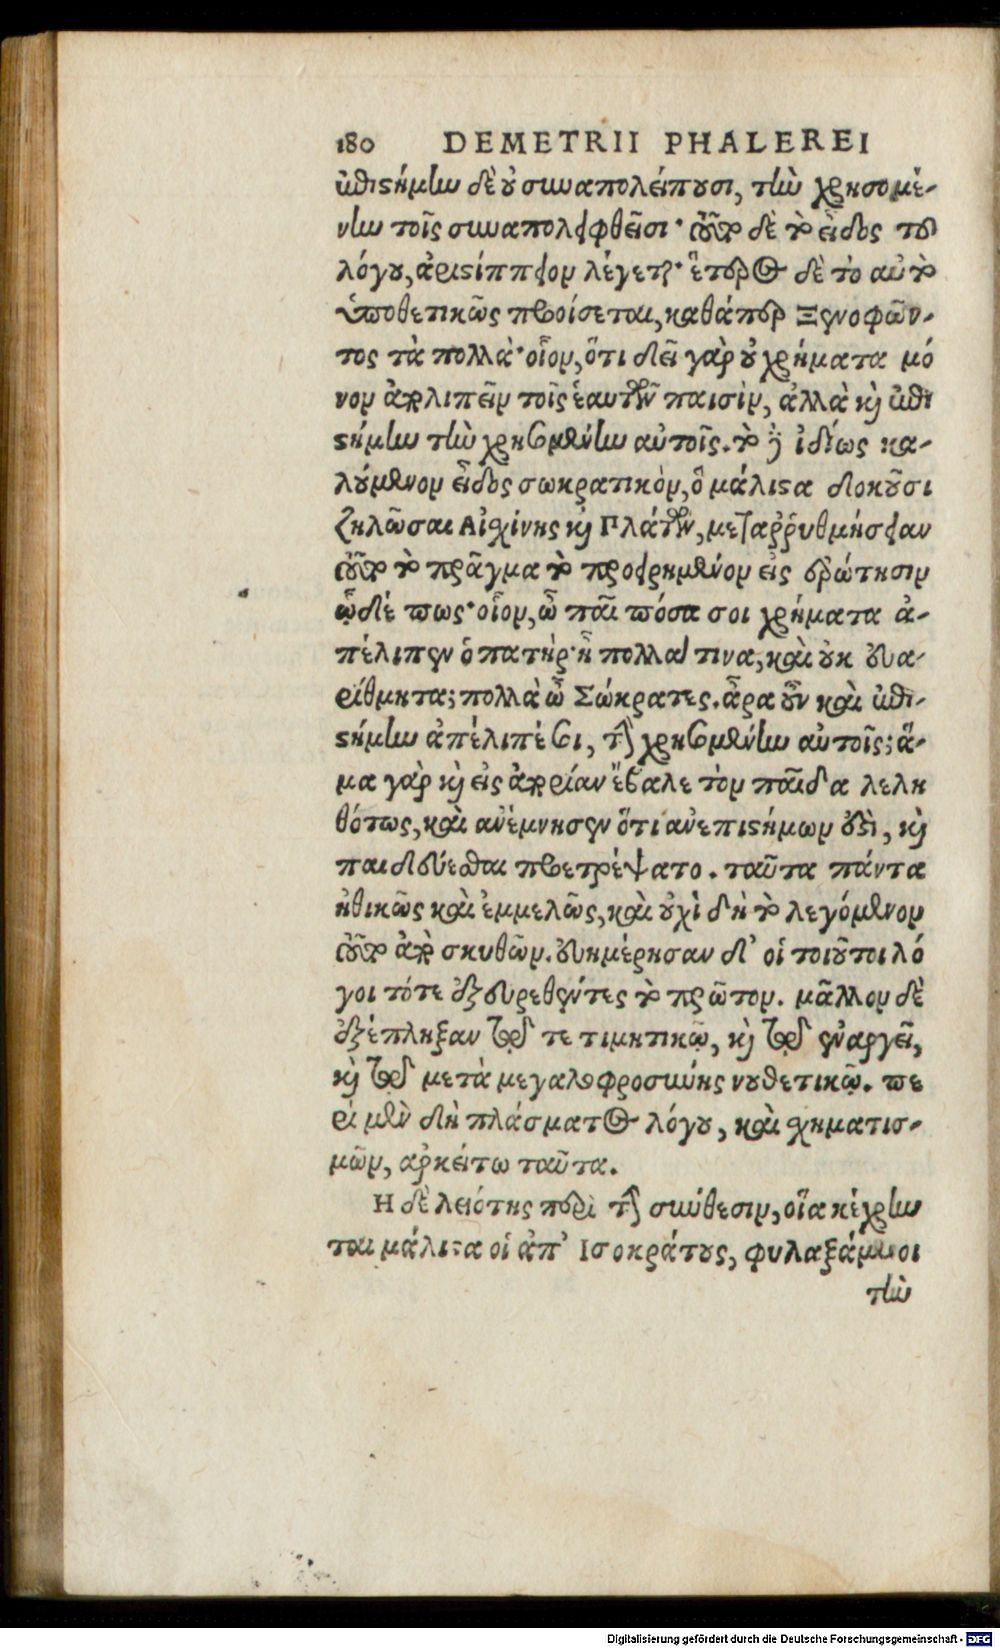 180 DEMETRII PHALEREI
ἐπιστήμην δὲ οὐ συναπολείπουσι, τὴν χρησομέ-
νην τοῖς συναπολειφθεῖσι· τοῦτο δὲ τὸ εἶδος τοῦ
λόγου, ἀριστίππειον λέγεται· ἕτερος δὲ τὸ αὐτὸ
ὑποθετικῶς προοίσεται, καθάπερ Ξενοφῶν-
τος τὰ πολλὰ· οἷον, ὅτι δεῖ γὰρ οὐ χρήματα μό
νον ἀπολιπεῖν τοῖς ἑαυτῶν παισὶν, ἀλλὰ καὶ ἐπι
στήμην τὴν χρησομένην αὐτοῖς. τὸ δὲ ἰδίως κα-
λούμενον εἶδος σωκρατικὸν, ὃ μάλιστα δοκοῦσι
ζηλῶσαι Αἰσχίνης καὶ Πλάτων, μεταῤῥυθμήσειαν
τοῦτο τὸ πρᾶγμα τὸ προειρημένον εἰς ἐρώτησιν
ᾧδέ πως· οἷον, ὦ παῖ πόσα σοι χρήματα ἀ-
πέλιπεν ὁ πατήρ· ἦ πολλὰ τινα, καὶ οὐκ εὐα-
ρίθμητα; πολλὰ ὦ Σώκρατες. ἆρα οὖν καὶ ἐπι-
στήμην ἀπέλιπέ σοι, τὴν χρησομένην αὐτοῖς; ἅ-
μα γὰρ καὶ εἰς ἀπορίαν ἔβαλε τὸν παῖδα λελη
θότως, καὶ ἀνέμνησεν ὅτι ἀνεπιστήμων ἐστὶ, καὶ
παιδεύεσθαι προετρέψατο. ταῦτα πάντα
ἠθικῶς καὶ ἐμμελῶς, καὶ οὐχὶ δὴ τὸ λεγόμενον
τοῦτο ἀπὸ σκυθῶν. εὐημέρησαν δ’ οἱ τοιοῦτοι λό
γοι τότε ἐξευρεθέντες τὸ πρῶτον. μᾶλλον δὲ
ἐξέπληξαν τῷ τε τιμητικῷ, καὶ τῷ ἐναργεῖ,
καὶ τῷ μετὰ μεγαλοφροσύνης νουθετικῷ. πε
ρὶ μὲν δὴ πλάσματος λόγου, καὶ σχηματισ-
μῶν, ἀρκείτω ταῦτα.
Η δὲ λειότης περὶ τὴν σύνθεσιν, οἵα κέχρην
ται μάλιστα οἱ ἀπ’ Ισοκράτους, φυλαξάμενοι
τὴν
Digitalisierung gefördert durch die Deutsche Forschungsgemeinschaft - DFG